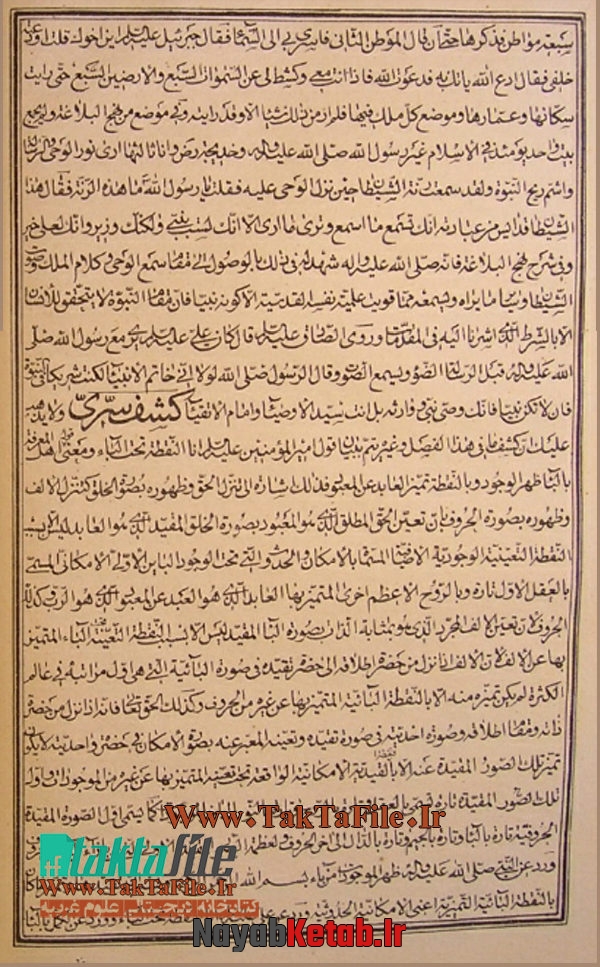 سبعة مواطن فذكرها حتى قال الموطن الثانى فاسرى بى الى السماء فقال جبرئيل عليه السلم اين اخوك فقلت
خلفى فقال ادع الله يأتك به فدعوت الله فاذا انت معى وكشط لى عن السموات السبع والارضين السبع حتى رايت
سكانها وعمارها وموضع كل ملك فيها فلم ار من ذلك شيئا الا وقد رايته وفى موضع من نهج البلاغة ولم يجمع
بيت واحد يومئذ فى الاسلام غير رسول الله صلى الله عليه وآله وخديجة رض وانا ثالثهما ارى نور الوحى
واشم ريح النبوة ولقد سمعت رنة الشيطان حين نزل الوحى عليه فقلت يا رسول الله ما هذه الرنة فقال هذا
الشيطان قد ايس من عبادته انك تسمع ما اسمع وترى ما ارى الا انك لست بنبى ولكنك وزير وانك لعلى خير
وفى شرح نهج البلاغة فانه صلى الله عليه وآله شهد له فى ذلك بالوصول الى مقام سمع الوحى وكلام الملك وصوت
الشيطان وساير ما يراه ويسمعه مما قويت عليه نفسه القدسية الا كونه نبيا فان مقام النبوة لا يتحقق للانسان
الا بالشرط الذى اشرنا اليه فى المقدمات وروى الصادق عليه السلم قال كان على عليه السلم يرى مع رسول الله صلى
الله عليه وآله قبل الرسالة الضوء ويسمع الصوت وقال الرسول صلى الله لولا انى خاتم الانبياء لكنت شريكا فى النبوة
فان لا تكن نبيا فانك وصى نبى وارثه بل انت سيد الاوصياء وامام الاتقياء كشف سرى ولا يذهب
عليك ان كشف ما فى هذا الفصل وغيره يتم ببيان قول امير المؤمنين عليه السلم انا النقطة تحت الباء ومعنى
بالباء ظهر الوجود وبالنقطة تميز العابد عن المعبود فذلك اشارة الى تنزل الحق وظهوره بصورة الخلق كتنزل الالف
وظهوره بصورة الحروف بان تعين الحق المطلق الذى هو المعبود بصورة الخلق المقيد الذى هو العابد ليس الا بسبب
النقطة التعينية الوجودية الاضافية المسماة بالامكان والحدوث والتى تحت الوجود الباين الاولى الامكانى المسمى
بالعقل الاول تارة وبالروح الاعظم اخرى المتميز بها العابد الذى هو العبد عن المعبود الذى هو الرب وكذلك
الحروف لان تعين الالف المجرد الذى هو بمثابة الذات بصورة الباء المقيد ليس الا بسبب النقطة التعينية البائية المتميز
بها عن الالف لان الالف اذا نزل من حضرة اطلاقه الى حضرة تقيده فى صورة البائية التى هى اول مراتبه فى عالم
الكثرة لم يكن تميزه منه الا بالنقطة البائية المتميز بها عن غيره من الحروف وكذلك الحق تعالى فانه اذا نزل من حضرة
ذاته ومقام اطلاقه وصورة احديته فى صورة تقيده وتعينه المعبر عنه بصورة الامكان فى حضرة واحديته لا يكون
تميز تلك الصور المقيدة عنه الا بالنقطة الامكانية الواقعة تحت تعينه المتميز بها عن غيره من الموجودات واول
تلك الصور المقيدة تارة يسمى بالعقل كما يسمى اول الصورة المقيدة
الحروفية تارة بالباء وتارة بالجيم وتارة بالدال الى آخر الحروف
ورد عن النبى صلى الله عليه وآله ظهر الموجودات من باء بسم الله
بالنقطة البائية التميزية اعنى الامكانية الحدوثية
www.TakTaFile.Ir
taktafile
www.TakTaFile.Ir
کتابخانه دیجیتالی علوم غریبه
NayabKetab.ir